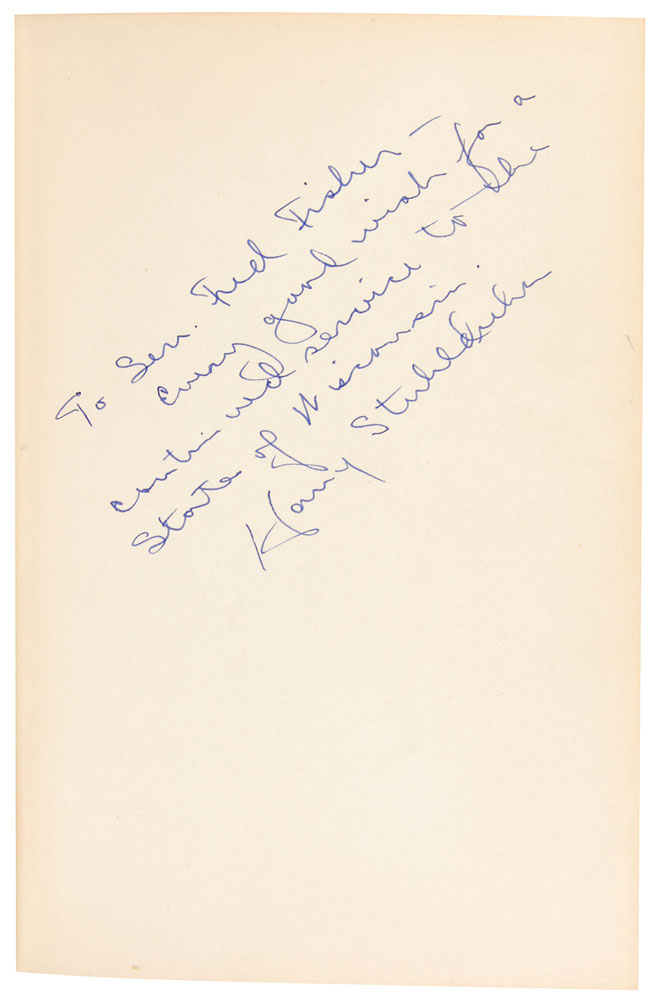 To Sen. Fred Fisher —
every good wish for a
continued service to the
State of Wisconsin.
Harry Stuhldreher